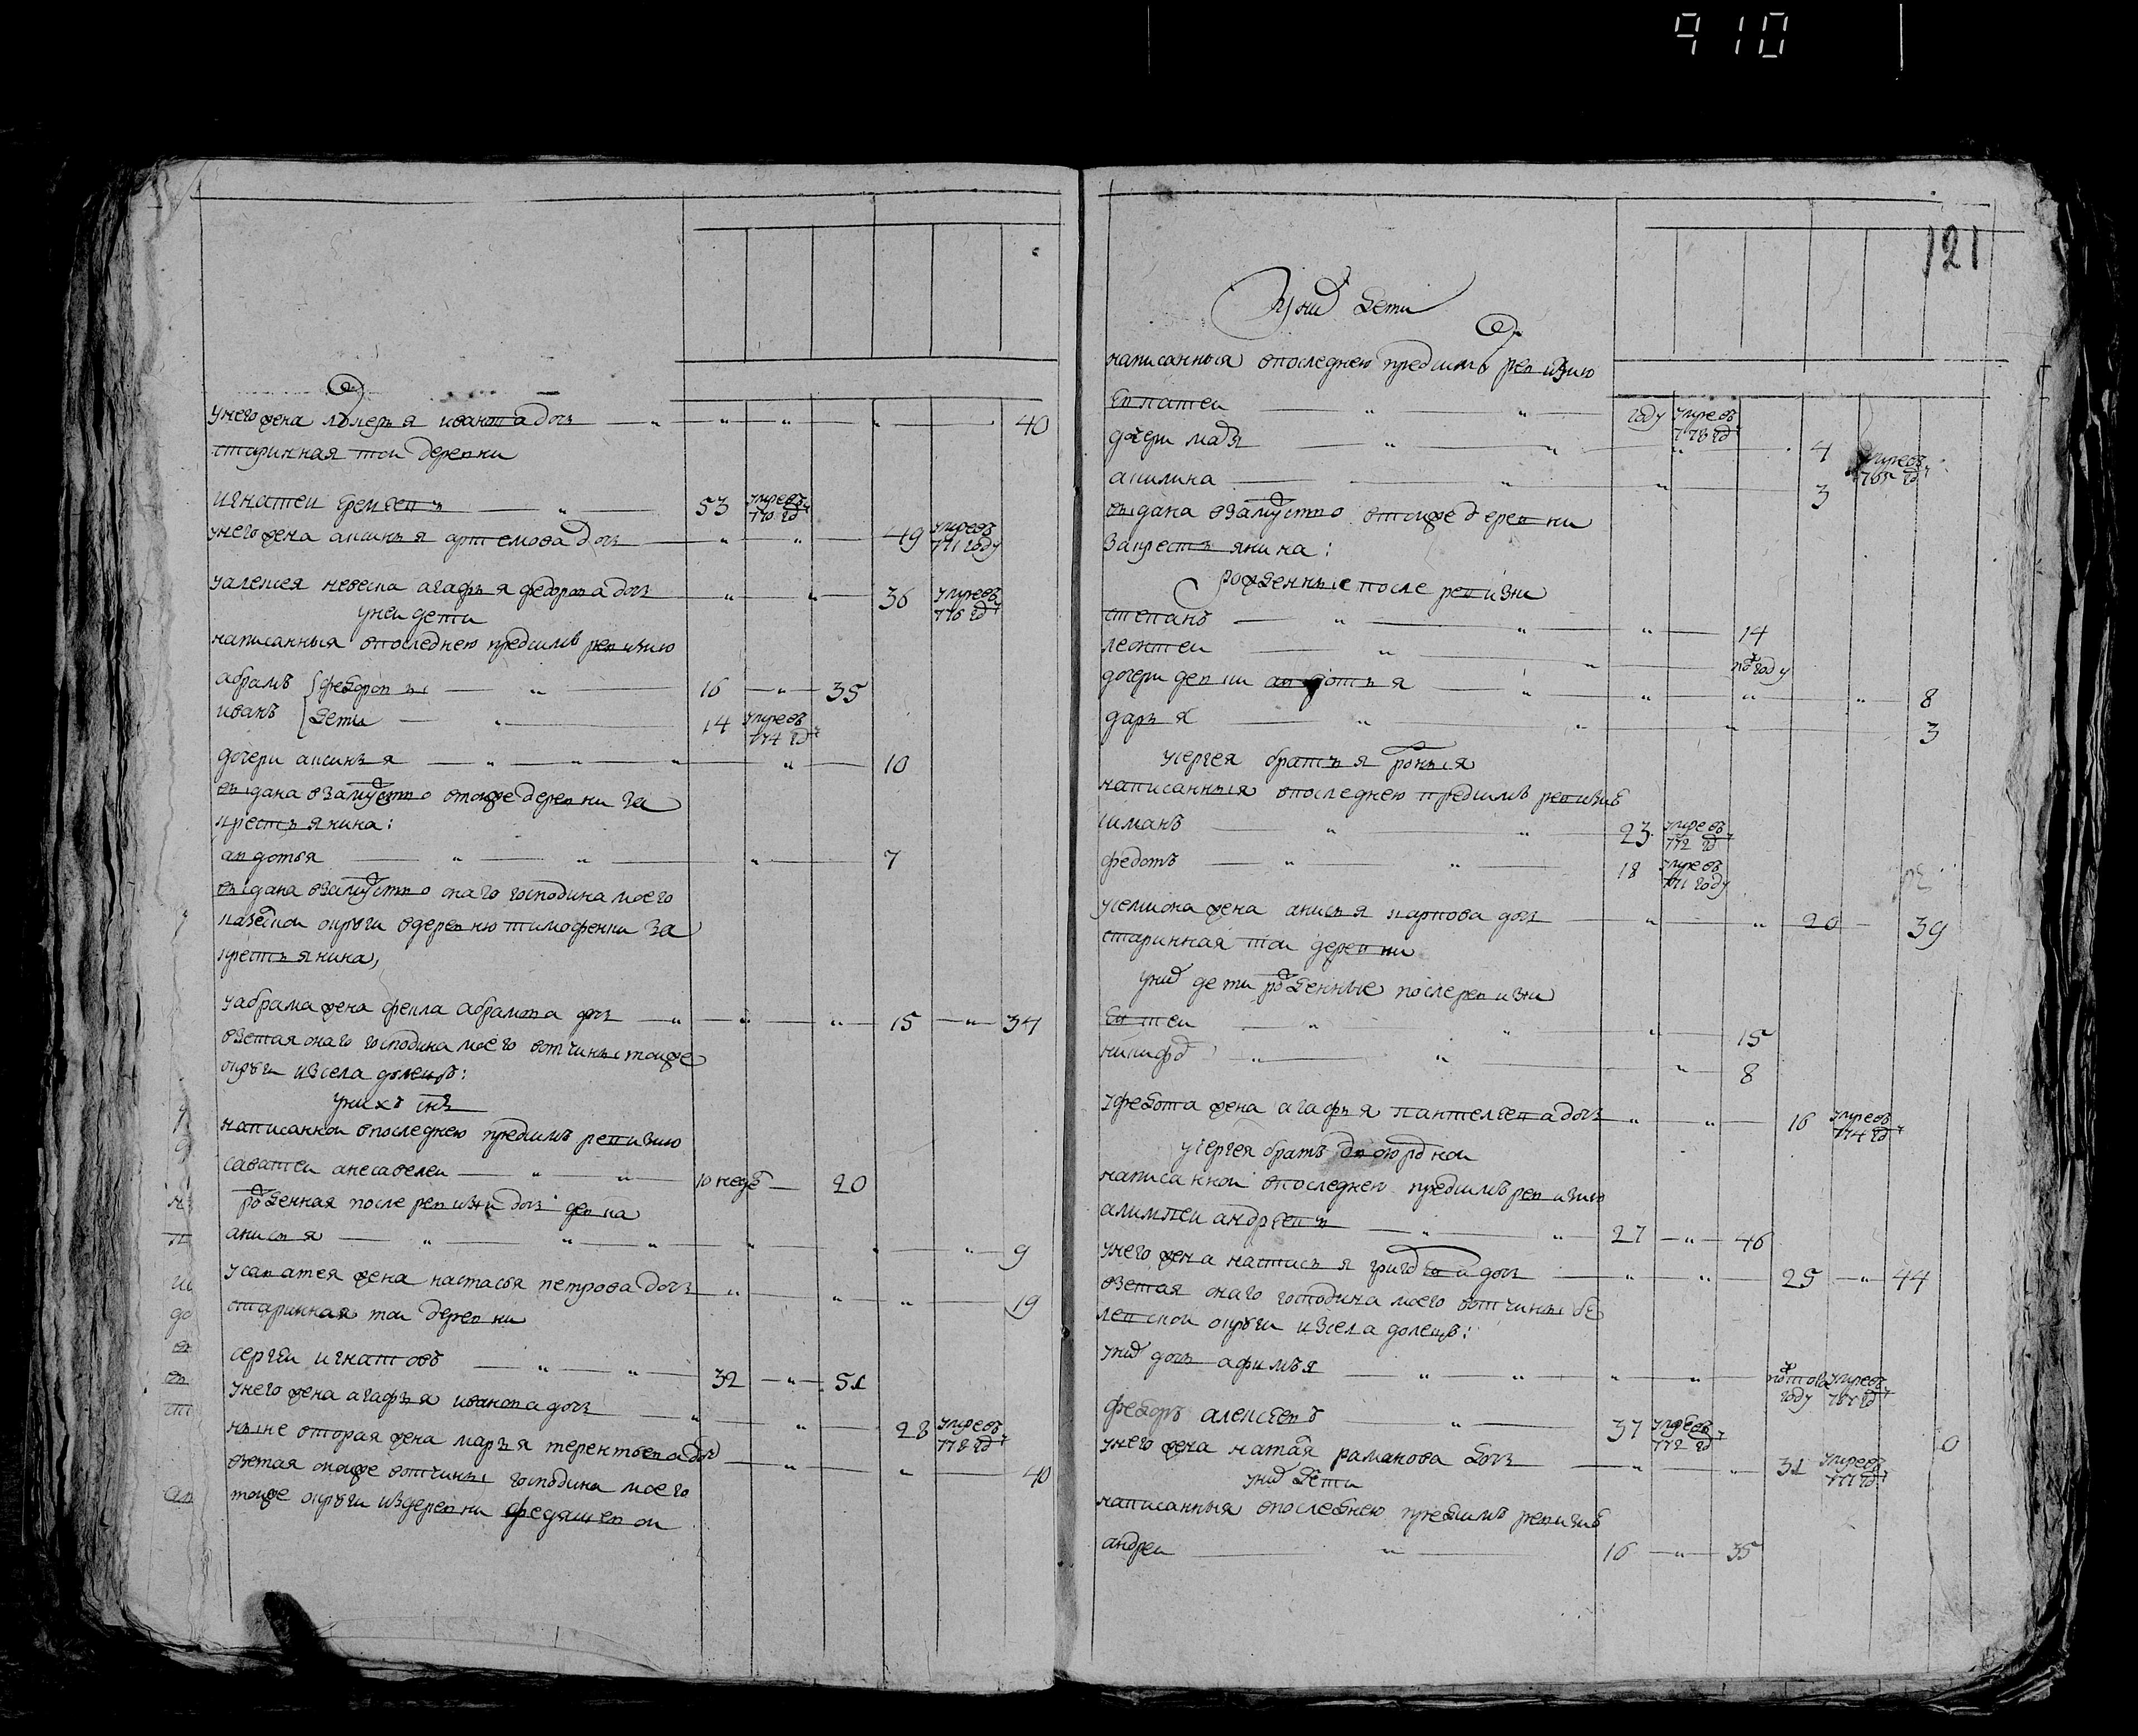 910
У него жена лукерья иванова дочь — „ — „ — „ — 40
старинная той деревни
игнатей еремеевъ — „ — 53 умре въ 770 гд
у него жена аксинья артемова дочь — „ — „ — 49 умре въ 771 году
у алексея невеска агафья федорова дочь — „ — „ — 36 умре въ 776 гд
у неи дети
написанныя в последнею пред симъ ревизию
абрамъ федоровы — „ — 16 — „ — 35
иванъ дети — „ — 14 умре въ 774 гд
дочери аксинья — „ — „ — „ — „ — 10
выдана в замужство в тоиже деревни за
крестьянина:
авдотья — „ — „ — „ — 7
выдана в замужство онаго господина моего
округи в деревню тимофенки за
крестьянина,
у абрама жена фекла абрамова дочь — „ — „ — „ — 15 — „ — 34
взетая онаго господина моего вотчины тоиже
округи из села долецъ:
у нихъ снъ
написанной в последнею пред симъ ревизию
саватеи анесавелеи — „ — „ — 10 недѣ — 20
рожденная после ревизии дочь девка
анисья — „ — „ — „ — „ — „ — „ — 9
у саватея жена настасья петрова дочь — „ — „ — „ — 19
старинная той деревни
сергеи игнатовъ — „ — „ — 32 — „ — 51
у него жена агафья иванова дочь — „ — „ — 28 умре въ 778 гд
ныне вторая жена марья терентьева дочь — „ — „ — 40
взетая онойже вотчины господина моего
тоиже округи из деревни федяшевои
121
У них дети
написанныя в последнею пред симъ ревизию
евлатеи — „ — „ — году умре въ 778 гд
дочери марья — „ — „ — „ — 4 умре въ 765 гд
акилина — „ — „ — 3
выдана в замужство в тоиже деревни
за крестьянина:
рожденные после ревизии
степанъ — „ — „ — „ — 14
леонтеи — „ — „ — полгоду
дочери девки авдотья — „ — „ — „ — „ — 8
дарья — „ — „ — „ — 3
у сергея братья родныя
написанныя в последнею пред симъ ревизию
симанъ — „ — „ — 23 умре въ 772 гд
федотъ — „ — „ — 18 умре въ 771 году
у семиона жена анисья карпова дочь — „ — „ — 20 — 39
старинная той деревни
у них дети рожденные после ревизии
евтеи — „ — „ — „ — 15
никифоръ — „ — „ — „ — 8
у федота жена агафья пантелеева дочь — „ — „ — 16 умре въ 774 гд
у сергея братъ двоюродной
написанной в последнею пред симъ ревизию
алимпеи андреевъ — „ — „ — 27 — „ — 46
у него жена настасья григорьева дочь — „ — „ — 25 — „ — 44
взетая онаго господина моего вотчины бе
левской округи из села долецъ:
у них дочь афимья — „ — „ — „ — „ — полтора году умре въ
федоръ алексеевъ — „ — 37 умре въ 772 гд
у него жена наталья раманова дочь — „ — „ — 31 умре въ 771 гд
у них дети
написанныя в последнею пред симъ ревизию
андреи — „ — 16 — „ — 35